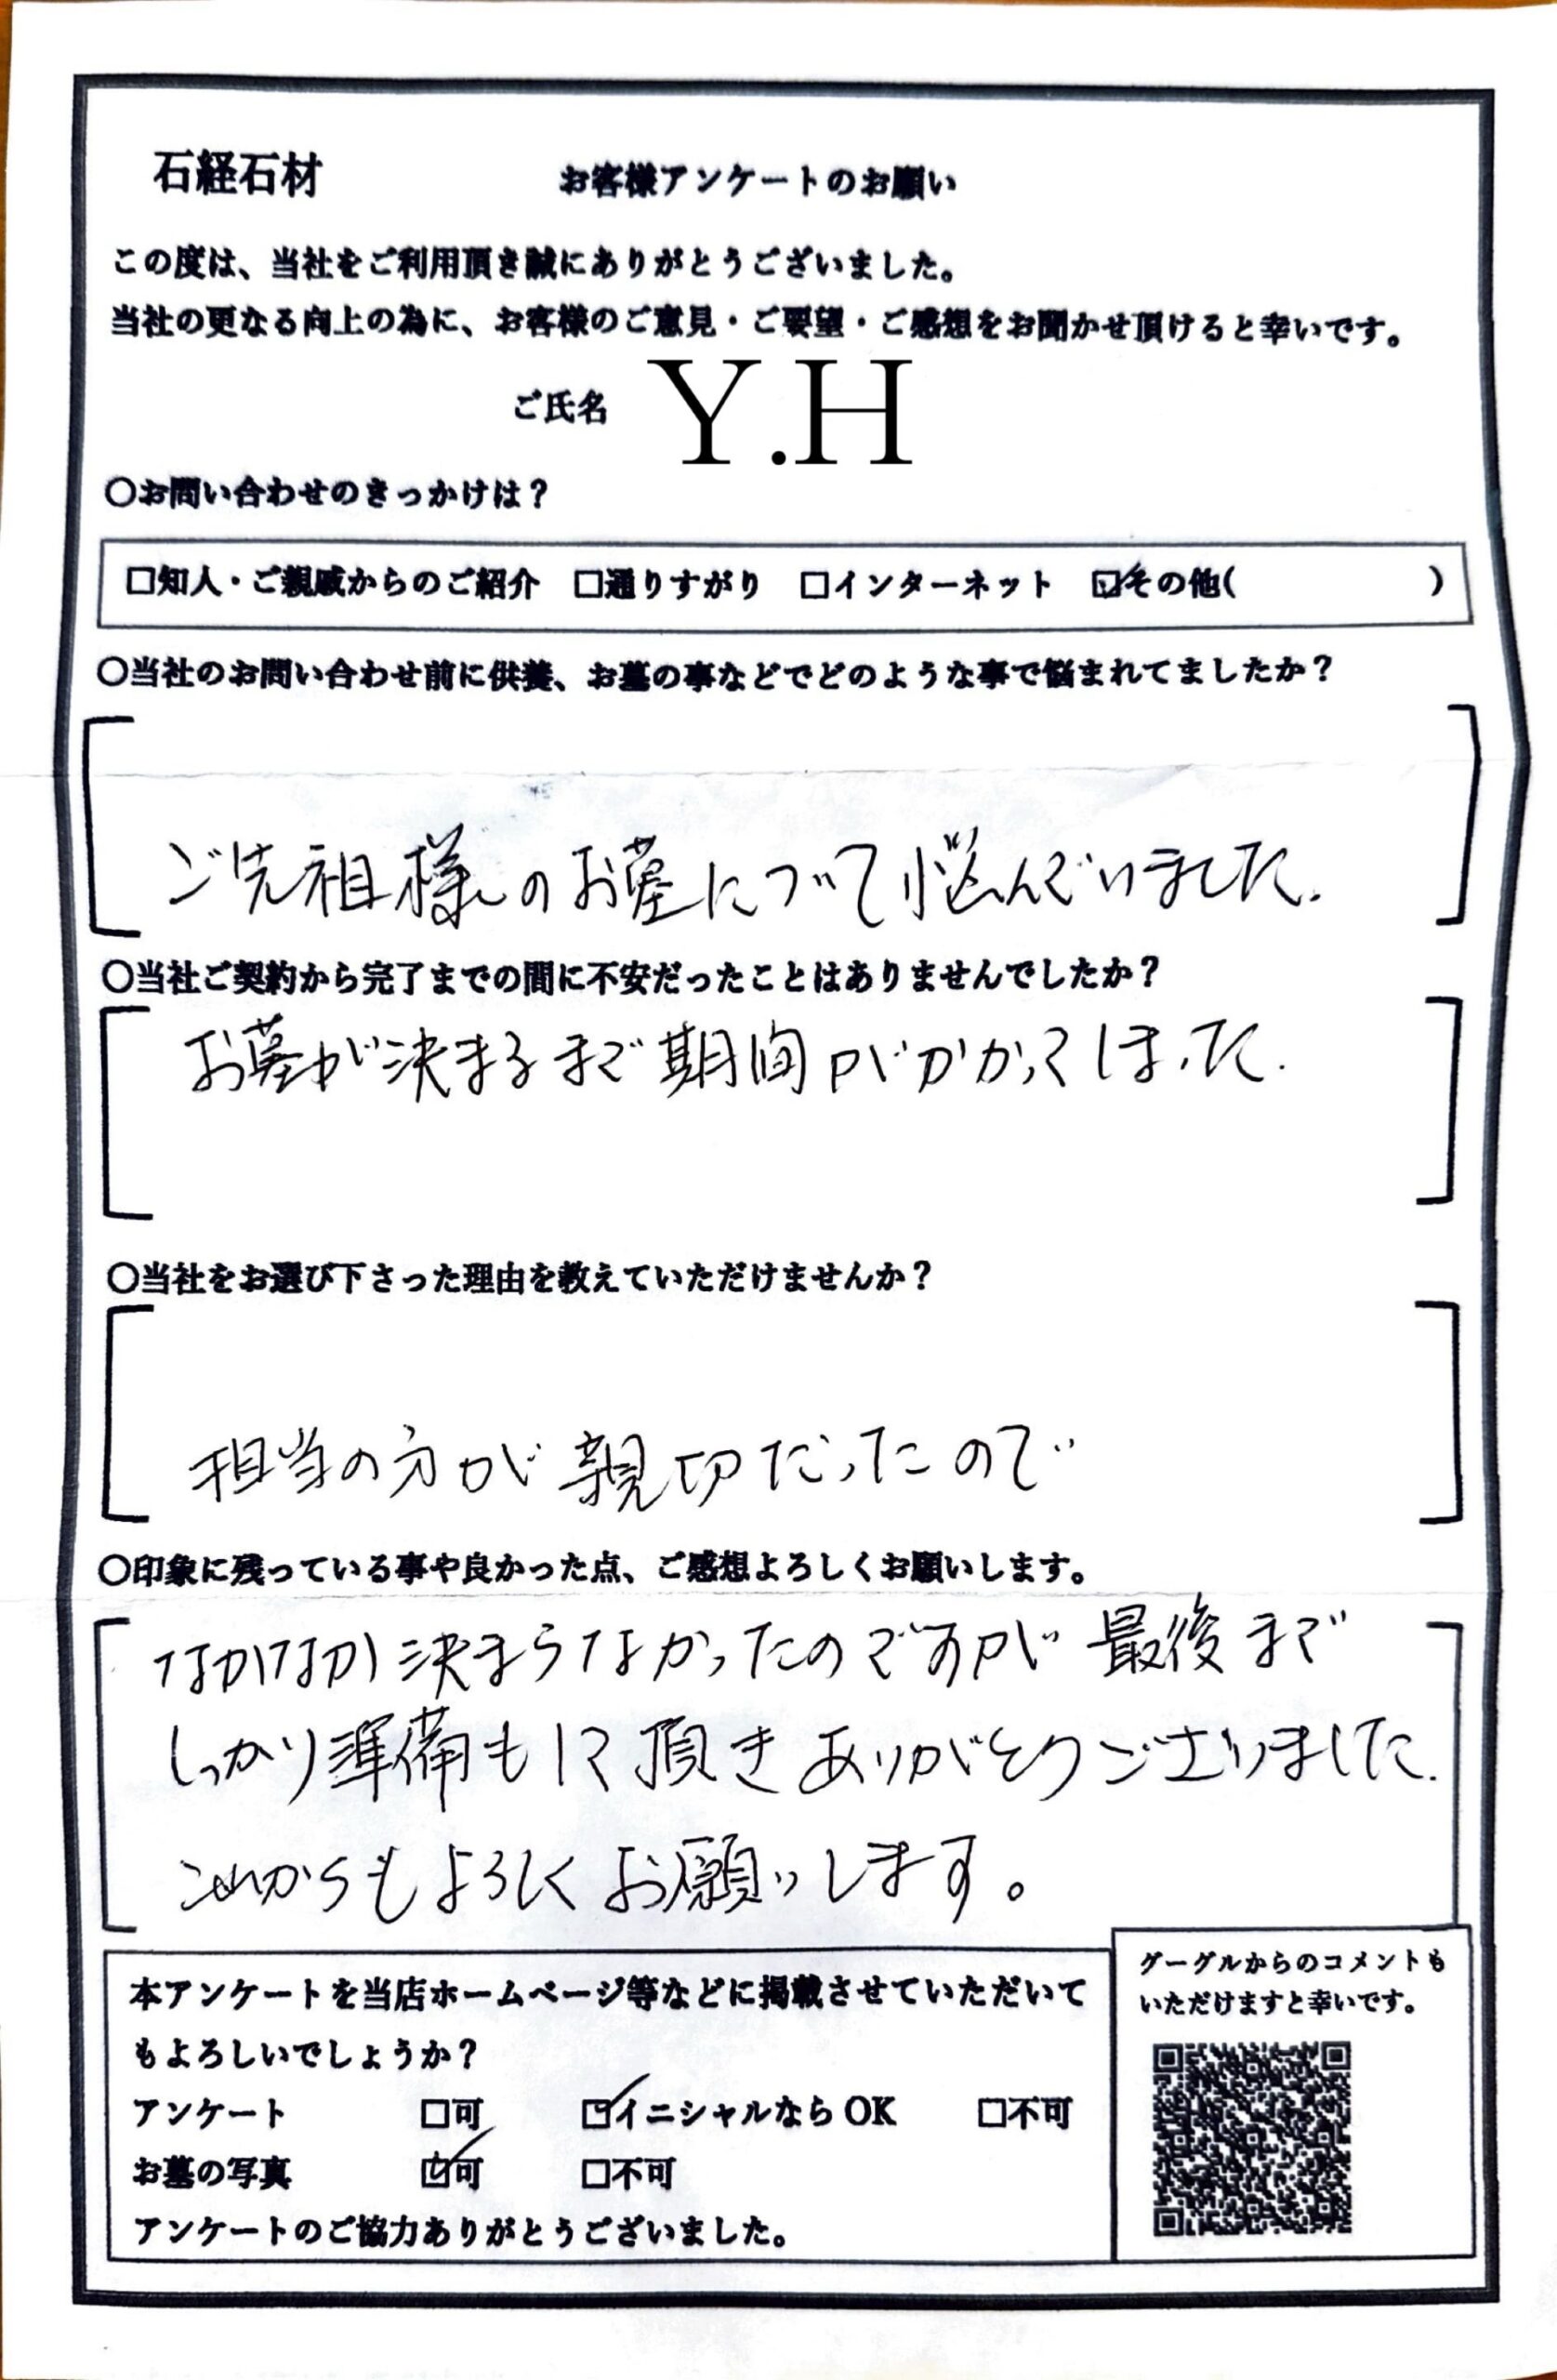 石経石材 お客様アンケートのお願い
この度は、当社をご利用頂き誠にありがとうございました。
当社の更なる向上の為に、お客様のご意見・ご要望・ご感想をお聞かせ頂けると幸いです。
ご氏名 Y.H
○お問い合わせのきっかけは？
□知人・ご親戚からのご紹介 □通りすがり □インターネット ☑その他( )
○当社のお問い合わせ前に供養、お墓の事などでどのような事で悩まれてましたか？
ご先祖様のお墓について悩んでいました.
○当社ご契約から完了までの間に不安だったことはありませんでしたか？
お墓が決まるまで期間がかかってしまった.
○当社をお選び下さった理由を教えていただけませんか？
担当の方が親切だったので
○印象に残っている事や良かった点、ご感想よろしくお願いします。
なかなか決まらなかったのですが最後まで
しっかり準備もして頂きありがとうございました.
これからもよろしくお願いします。
本アンケートを当店ホームページ等などに掲載させていただいて
もよろしいでしょうか？
アンケート □可 ☑イニシャルならOK □不可
お墓の写真 ☑可 □不可
アンケートのご協力ありがとうございました。
グーグルからのコメントも
いただけますと幸いです。